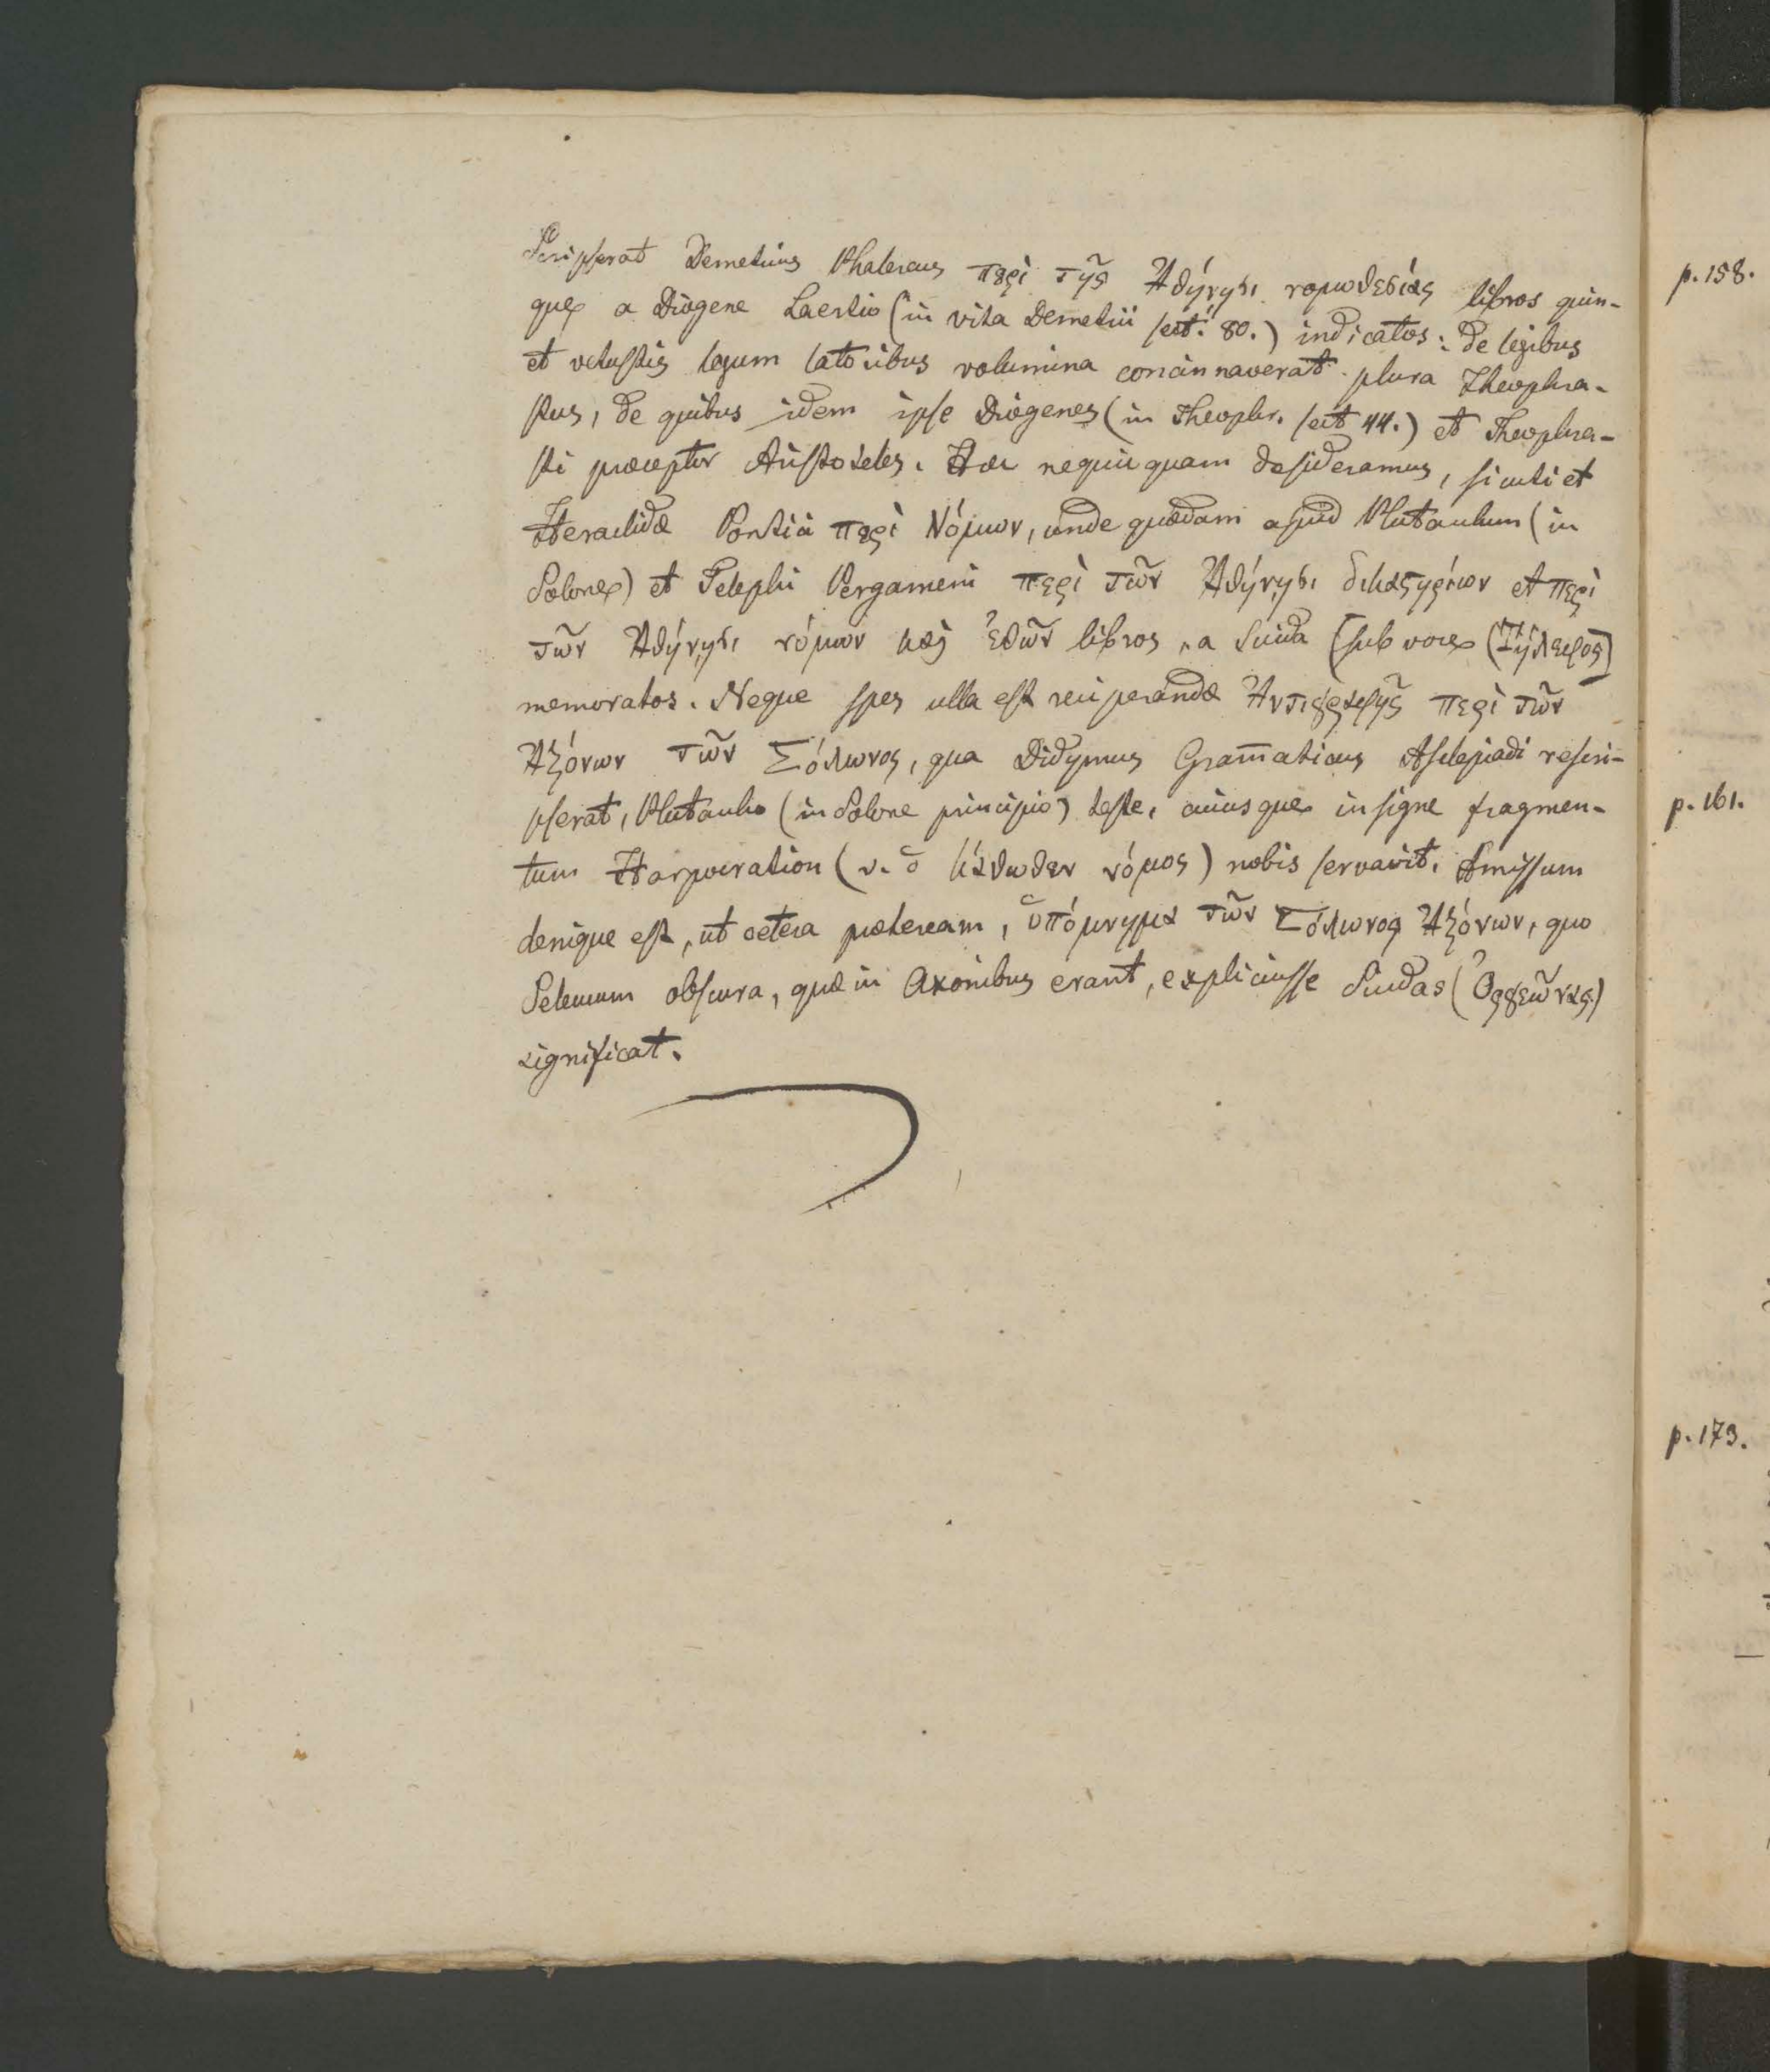 Scripserat Demetrius Phalereus περὶ τῆς Ἀθήνησι νομοθεσίας libros quin- p. 158.
que a Diogene Laertio (in vita Demetrii sect. 80.) indicatos: de legibus
et vetustis legum latoribus volumina concinnaverat plura Theophra-
stus, de quibus idem ipse Diogenes (in Theophr. sect 44.) et Theophra-
sti præceptor Aristoteles. Hæc nequicquam desideramus, sicuti et
Heraclidæ Pontici περὶ Νόμων, unde quædam apud Plutarchum (in
Solone) et Telephi Pergameni περὶ τῶν Ἀθήνησι δικαστηρίων et περὶ
τῶν Ἀθήνησι νόμων καὶ ἐθῶν libros, a Suida (sub voce (Τήλεφος)
memoratos. Neque spes ulla est recuperandæ Ἀντιγραφῆς περὶ τῶν
Ἀξόνων τῶν Σόλωνος, qua Didymus Gram̄aticus Asclepiadi rescri-
pserat, Plutarcho (in Solone principio) teste, cuiusque insigne fragmen- p. 161.
tum Harpocration (v. ὁ κάθωθεν νόμος) nobis servavit. Amissum
denique est, ut cetera præteream, ὑπόμνημα τῶν Σόλωνος Ἀξόνων, quo
Seleucum obscura, quæ in Axonibus erant, explicuisse Suidas (Ὀργεῶνας)
significat.
p. 173.